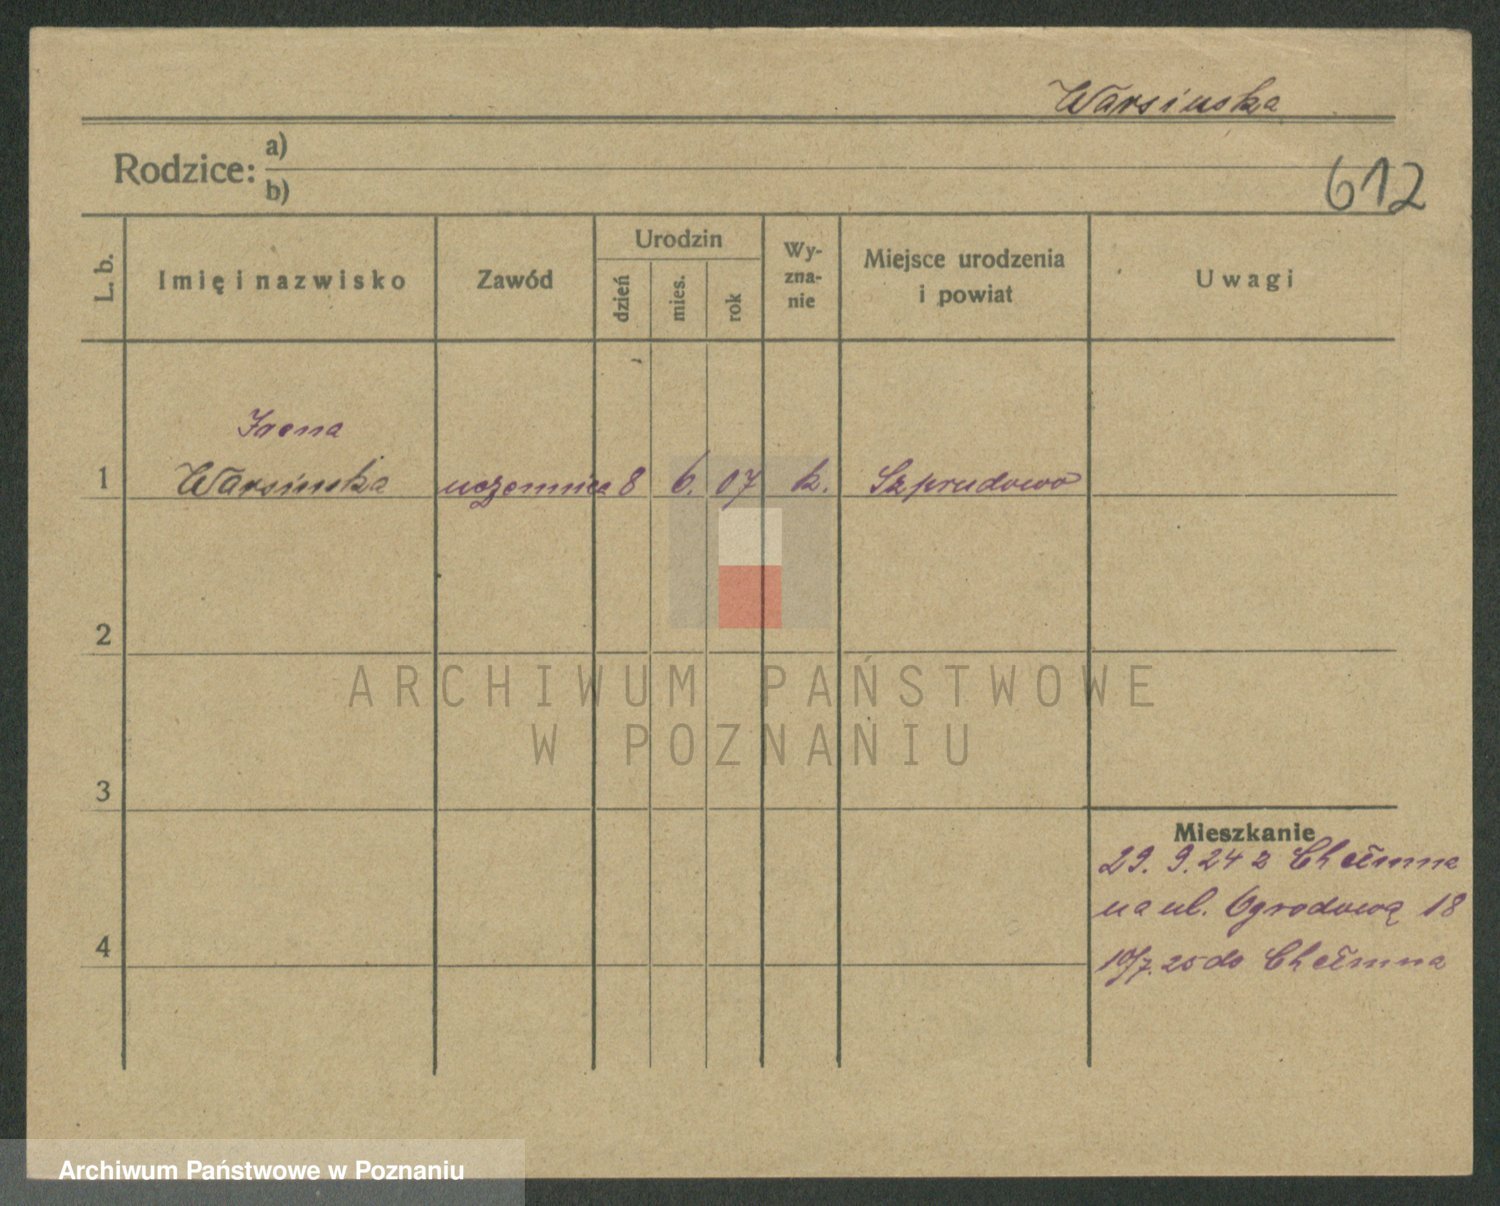 Warsinska
Rodzice: a)
b)
612
L. b.
Imię i nazwisko
Zawód
Urodzin
dzień
mies.
rok
Wy-
zna-
nie
Miejsce urodzenia
i powiat
Uwagi
Irena
1 Warsinska uczennica 8 6. 07 k. Szprudowo
2
3
4
Mieszkanie
29. 9. 24 z Chełmna
na ul. Ogrodową 18
10/7. 25 do Chełmna
ARCHIWUM PAŃSTWOWE
W POZNANIU
Archiwum Państwowe w Poznaniu